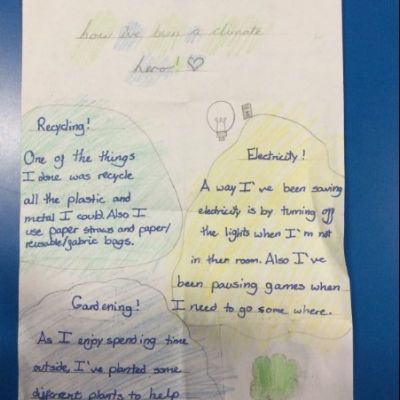 how i've been a climate
hero! ♡
Recycling!
One of the things
I done was recycle
all the plastic and
metal I could. Also I
use paper straws and paper/
reusable/fabric bags.
Electricity!
A way I've been saving
electricity is by turning off
the lights when I'm not
in ther room. Also I've
been pausing games when
I need to go some where.
Gardening!
As I enjoy spending time
outside, I've planted some
different plants to help